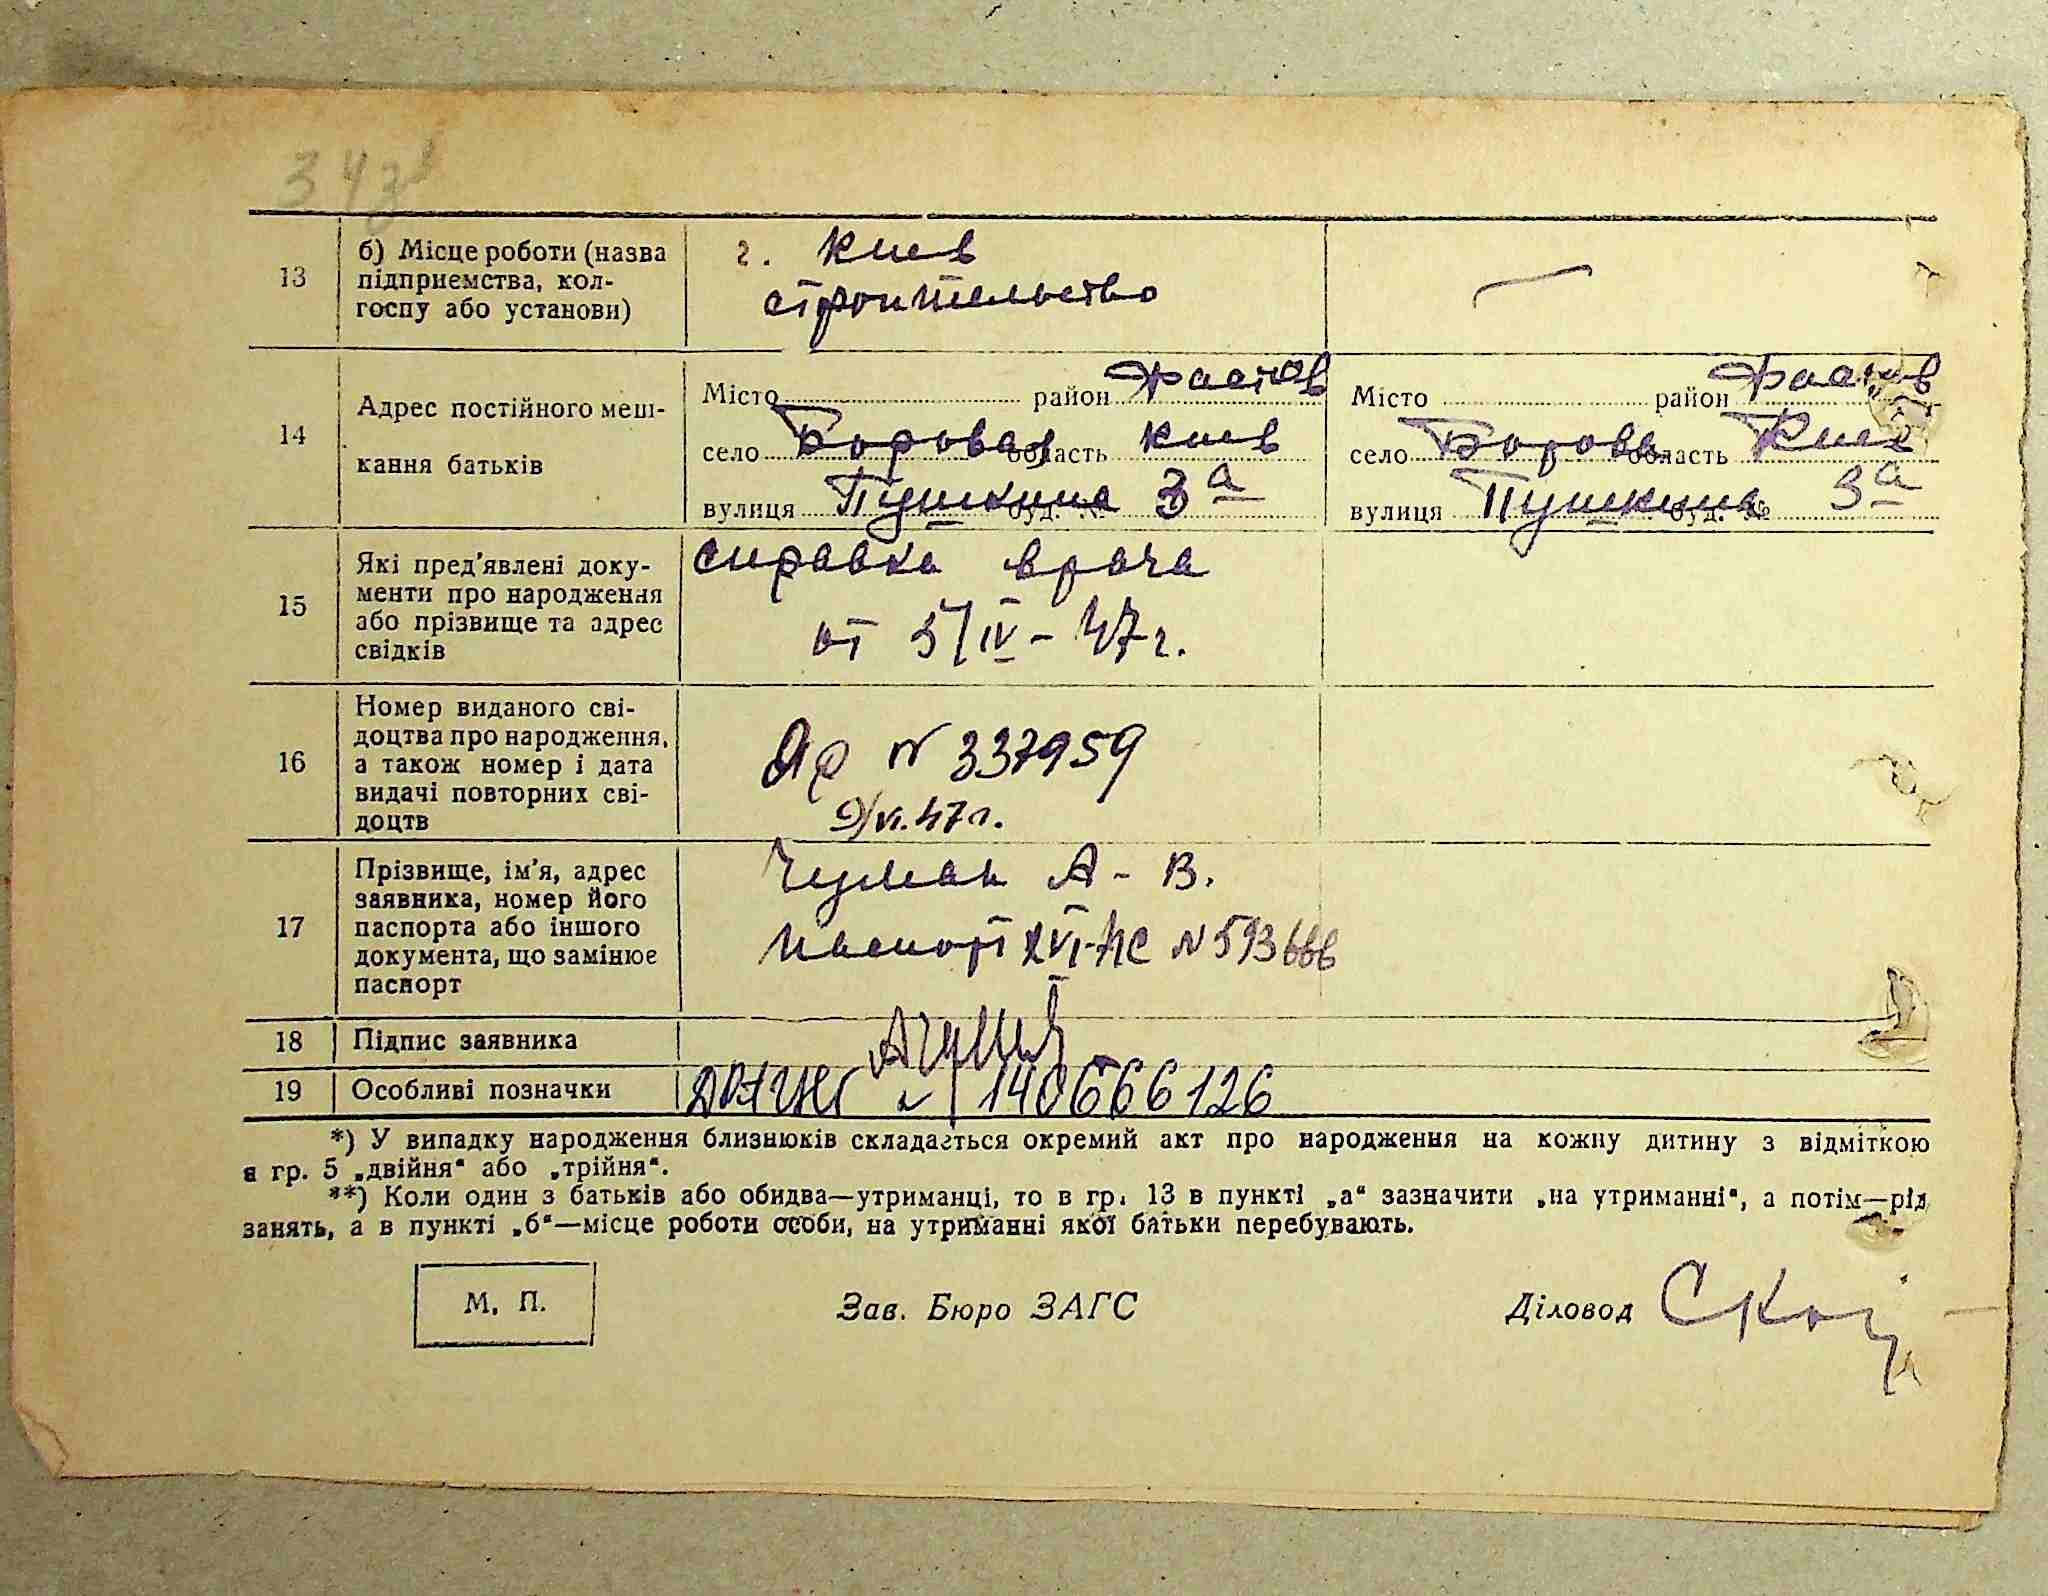 13
б) Місце роботи (назва
підприємства, кол-
госпу або установи)
г. Киев
строительство
14
Адрес постійного меш-
кання батьків
Місто район Фастов
село Боровая область Киев
вулиця Пушкина буд. № 3а
Місто район Фастов
село Борова область Киев
вулиця Пушкина буд. № 3а
15
Які пред'явлені доку-
менти про народження
або прізвище та адрес
свідків
справка врача
от 5/IV-47г.
16
Номер виданого сві-
доцтва про народження,
а також номер і дата
видачі повторних сві-
доцтв
N 337959
9/VI.47г.
17
Прізвище, ім'я, адрес
заявника, номер його
паспорта або іншого
документа, що замінює
паспорт
Чумак А-В.
Паспорт XVI-ЛС N 593666
18
Підпис заявника
19
Особливі позначки
140666126
*) У випадку народження близнюків складається окремий акт про народження на кожну дитину з відміткою
в гр. 5 „двійня“ або „трійня“.
**) Коли один з батьків або обидва—утриманці, то в гр. 13 в пункті „а“ зазначити „на утриманні“, а потім—рід
занять, а в пункті „б“—місце роботи особи, на утриманні якої батьки перебувають.
М. П.
Зав. Бюро ЗАГС
Діловод